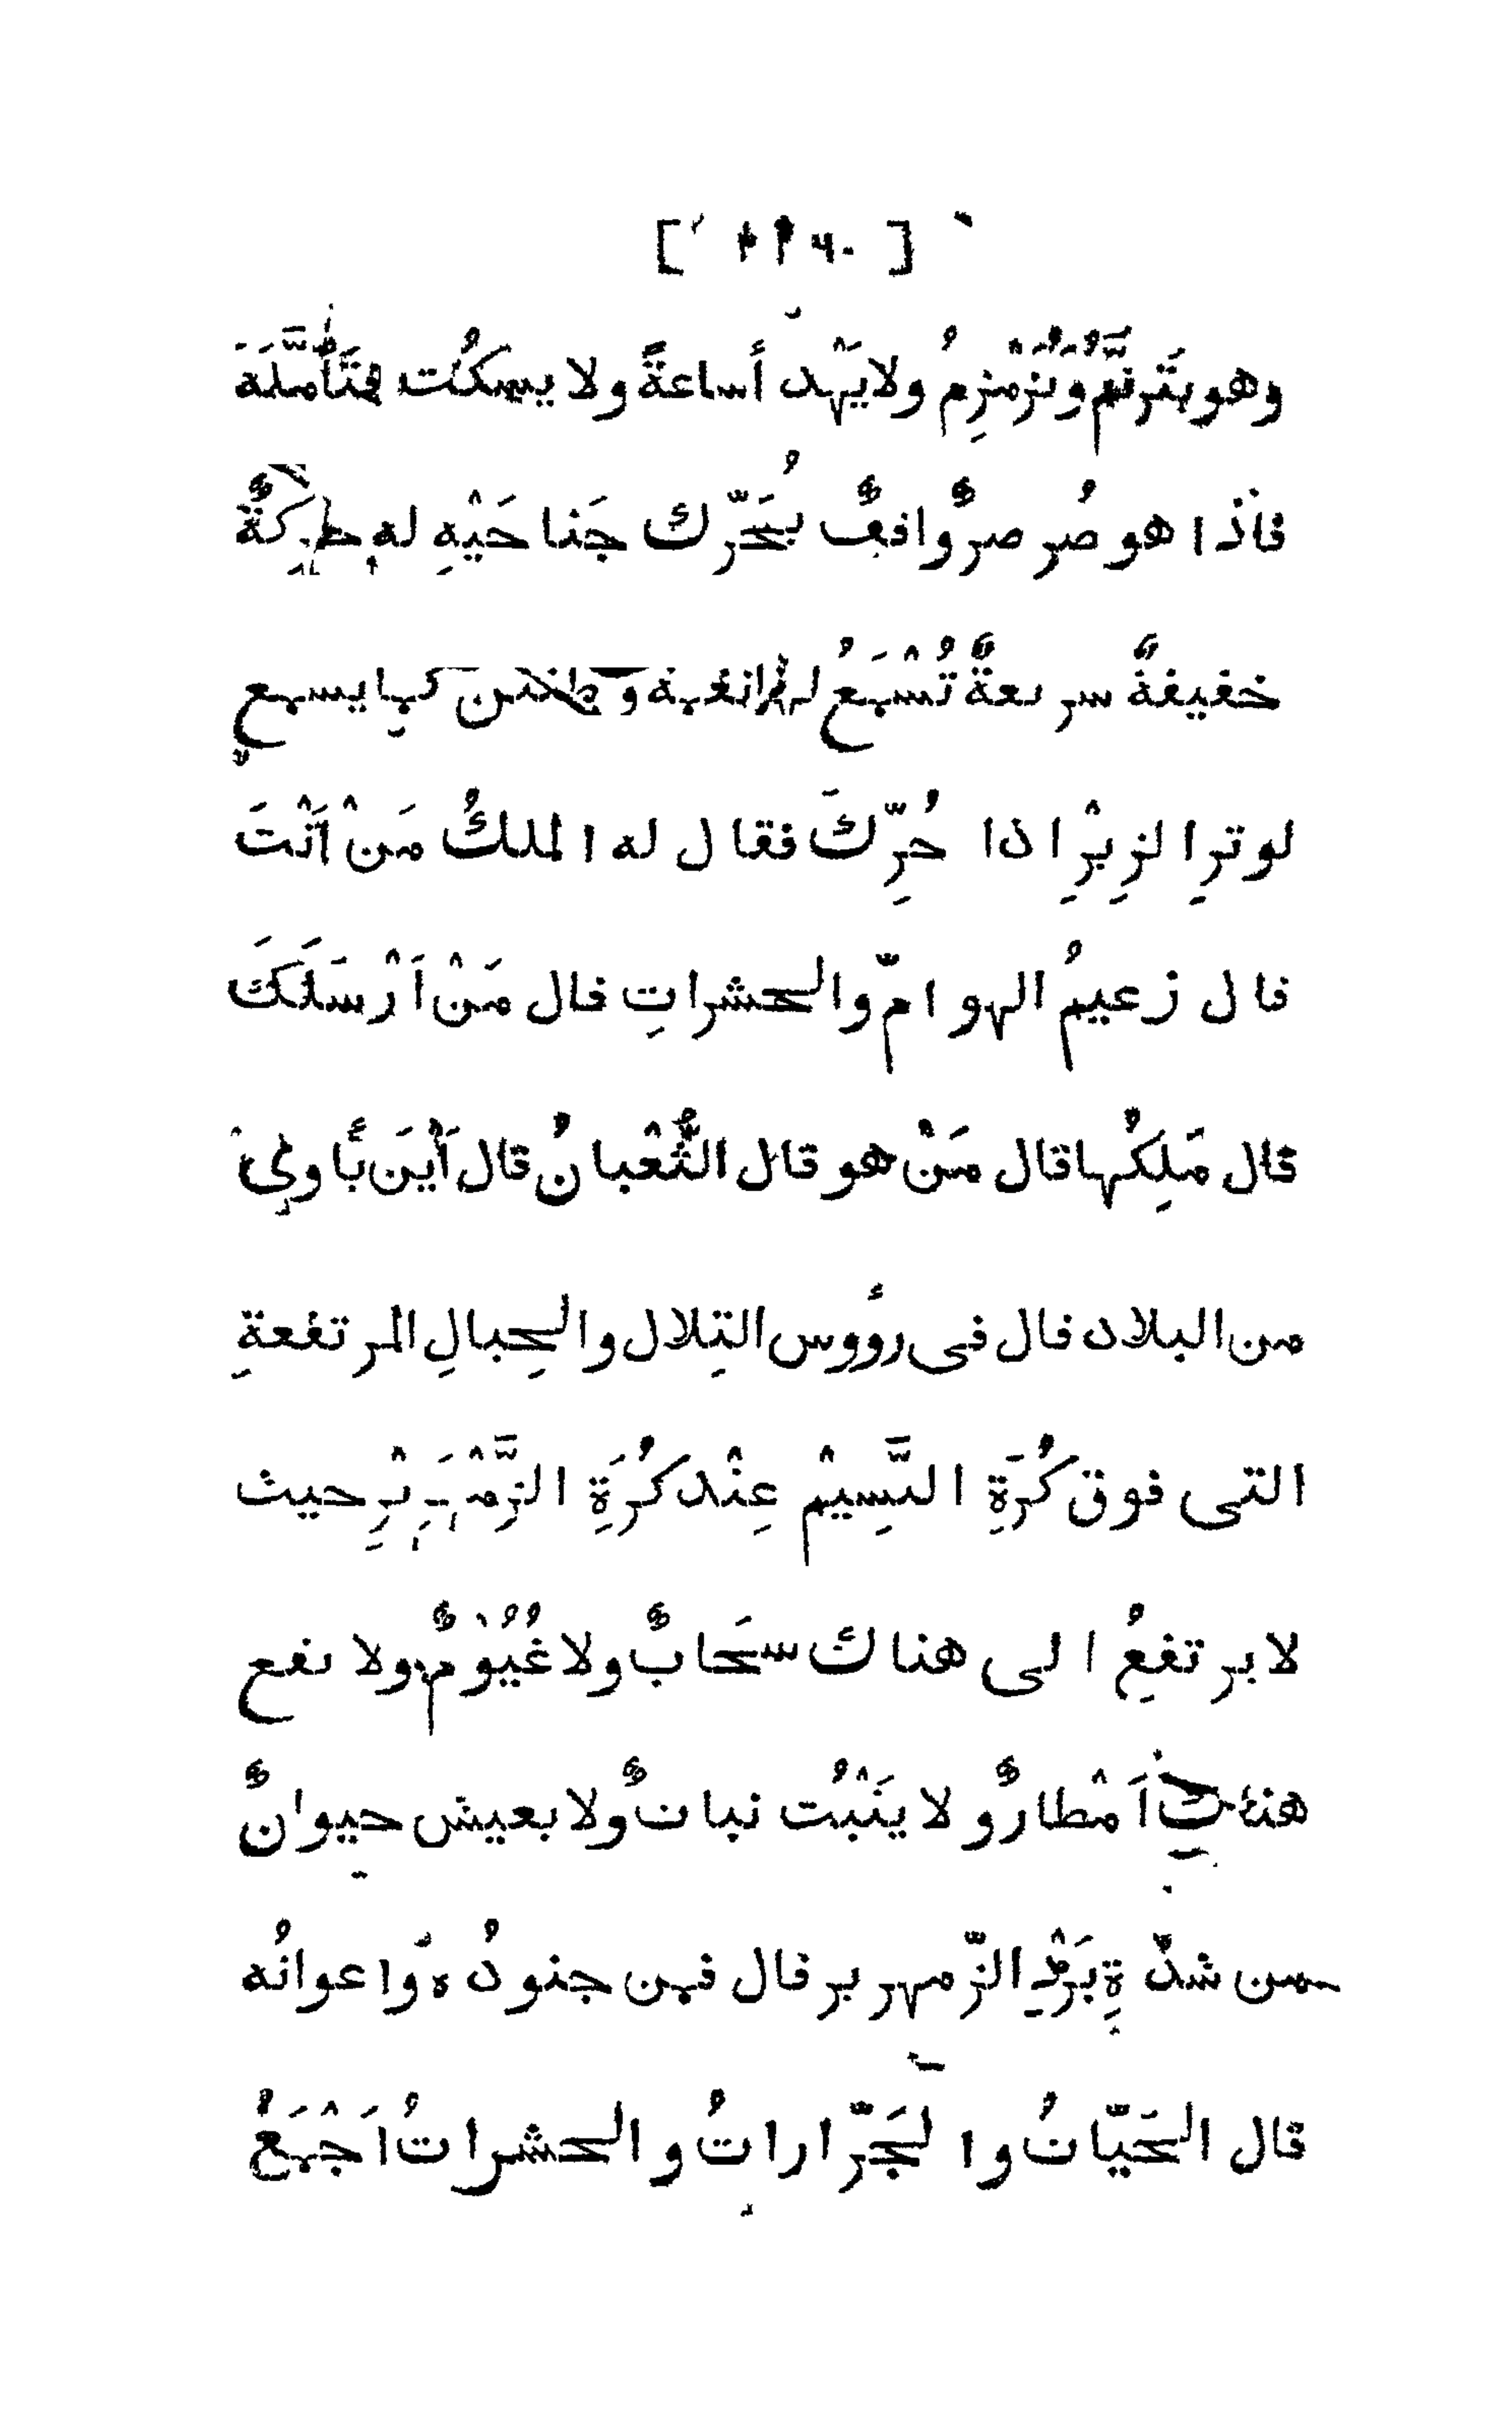 وهو يَتَرنَّمُ ويُزَمْزِمُ ولا يَهْدأ ساعةً ولا يسكُت فتَأَمَّلَهَ
فاذا هو صُرصرٌ واقفٌ يُحَرِّك جَناحَيْهِ له حركةٌ
خفيفةٌ سريعةٌ تُسْمَعُ لها نغمة وطنين كما يسمع
لوترِ الزِيْرِ اذا حُرِّكَ فقال له الملكُ مَنْ اَنْتَ
قال زعيمُ الهوامّ والحشراتِ قال مَنْ اَرْسَلَكَ
قال مَلِكُها قال مَنْ هو قال الثُّعْبانُ قال اَيْنَ يَأوِيْ
من البلاد قال فى رؤُوس التِلال والجِبالِ المرتفعةِ
التى فوق كُرَةِ النَّسِيْم عِنْد كُرَةِ الزَّمْهَرِيْرِ حيث
لا يرتفعُ الى هناك سحَابٌ ولا غُيُوْمٌ ولا يقع
هناك اَمْطارٌ ولا يَنْبُت نباتٌ ولا يعيش حيوانٌ
من شدّةِ بَرْدِ الزّمهرير قال فمن جنودُه واعوانُه
قال الحَيّاتُ والجَرّاراتُ والحشراتُ اَجْمَعُ